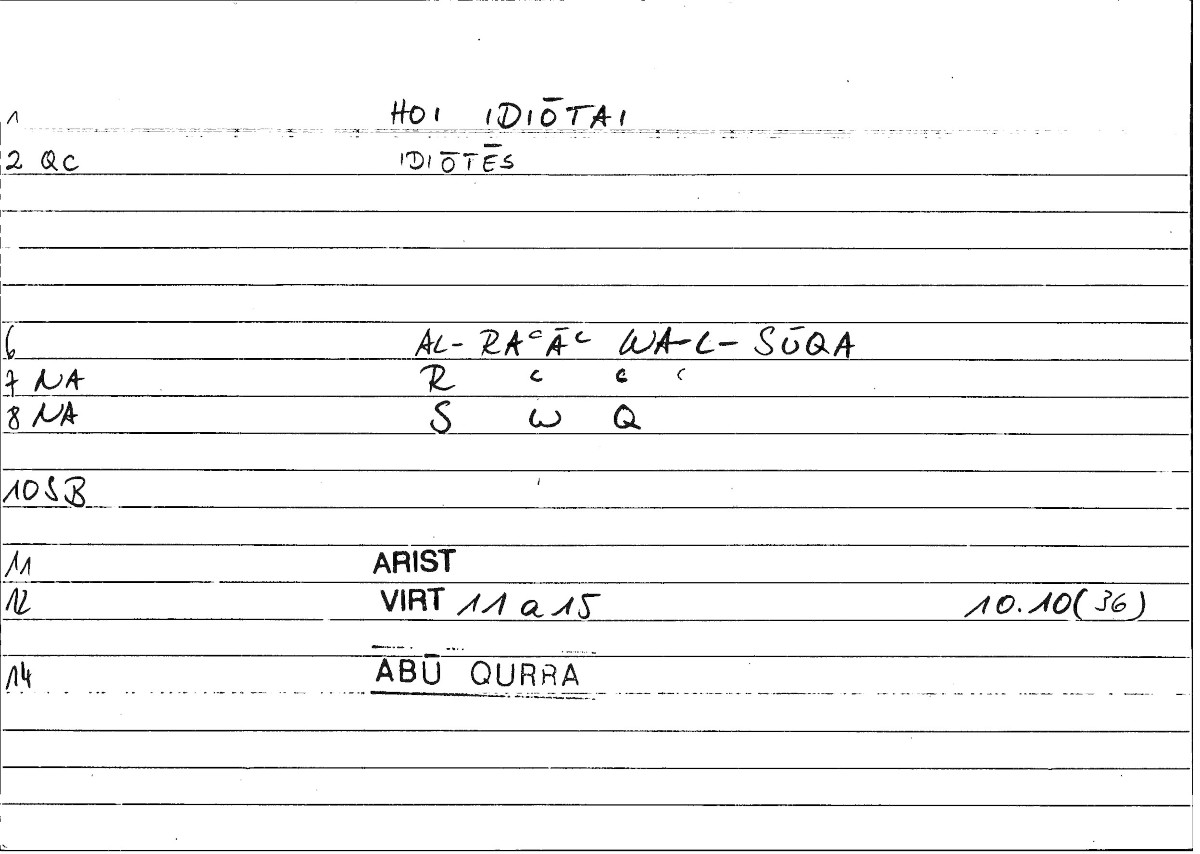 1 HOI IDIŌTAI
2 QC IDIŌTĒS
6 AL-RAʿĀʿ WA-L-SŪQA
7 NA R ʿ ʿ ʿ
8 NA S W Q
10 SB
11 ARIST
12 VIRT 11 a 15 10.10(36)
14 ABŪ QURRA